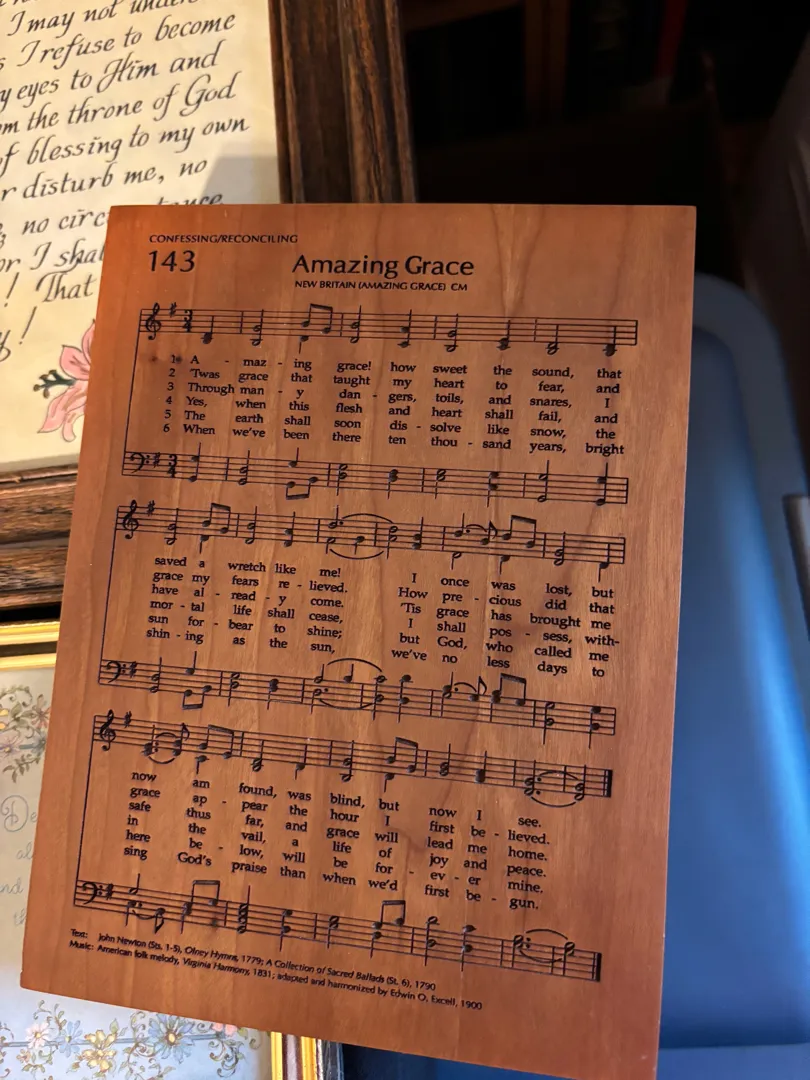 I may not under
I refuse to become
y eyes to Him and
m the throne of God
f blessing to my own
r disturb me, no
, no circ
or I shal
! That
y!
CONFESSING/RECONCILING
143 Amazing Grace
NEW BRITAIN (AMAZING GRACE) CM
1 A - maz - ing grace! how sweet the sound, that
2 'Twas grace that taught my heart to fear, and
3 Through man - y dan - gers, toils, and snares, I
4 Yes, when this flesh and heart shall fail, and
5 The earth shall soon dis - solve like snow, the
6 When we've been there ten thou - sand years, bright
saved a wretch like me! I once was lost, but
grace my fears re - lieved. How pre - cious did that
have al - read - y come. 'Tis grace has brought me
mor - tal life shall cease, I shall pos - sess, with-
sun for - bear to shine; but God, who called me
shin - ing as the sun, we've no less days to
now am found, was blind, but now I see.
grace ap - pear the hour I first be - lieved.
safe thus far, and grace will lead me home.
in the vail, a life of joy and peace.
here be - low, will be for - ev - er mine.
sing God's praise than when we'd first be - gun.
Text: John Newton (Sts. 1-5), Olney Hymns, 1779; A Collection of Sacred Ballads (St. 6), 1790
Music: American folk melody, Virginia Harmony, 1831; adapted and harmonized by Edwin O. Excell, 1900
De
and